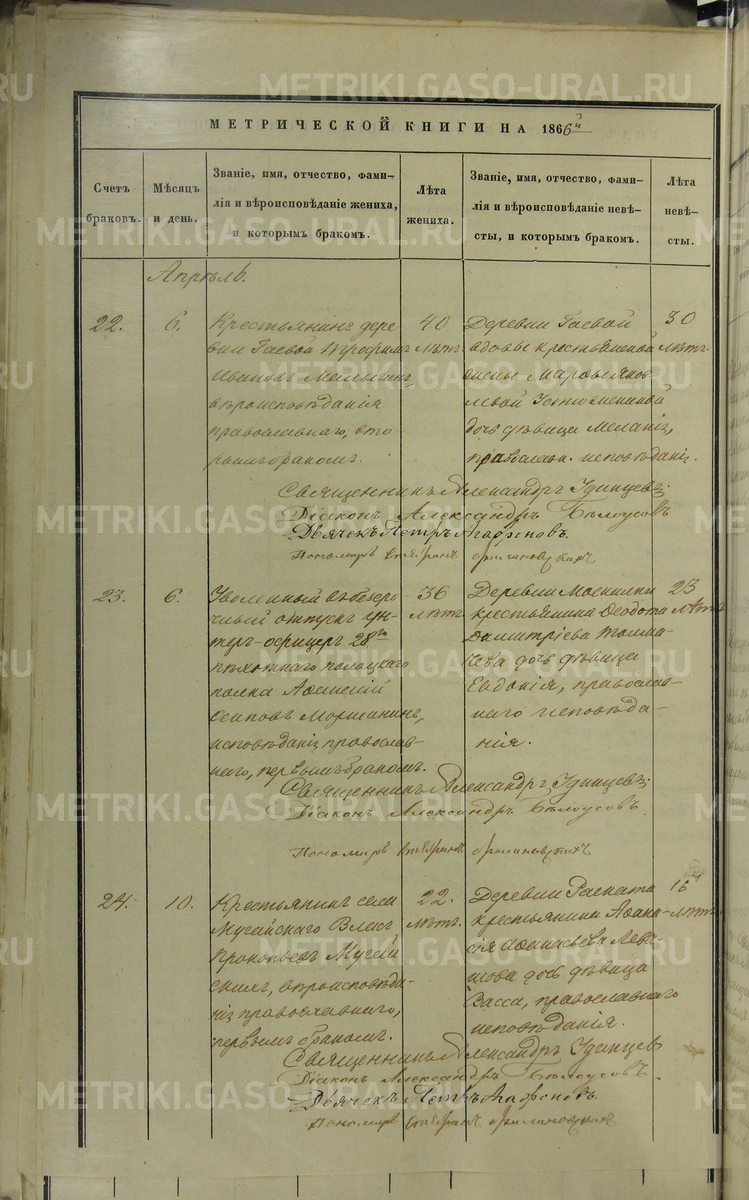 МЕТРИЧЕСКОЙ КНИГИ НА 1866й
Счетъ браковъ.
Мѣсяцъ и день.
Званіе, имя, отчество, фами-
лія и вѣроисповѣданіе жениха,
и которымъ бракомъ.
Лѣта жениха.
Званіе, имя, отчество, фами-
лія и вѣроисповѣданіе невѣ-
сты, и которымъ бракомъ.
Лѣта невѣ-
сты.
Апрѣль.
22.
6.
Крестьянинъ дере-
вни Гаевой Трофимъ
Ивановъ
вѣроисповѣданія
православнаго, вто-
рымъ бракомъ.
40
лѣтъ.
Деревни Гаевой
вдовы крестьянской
жены Марьи Яков-
левой
дочь дѣвица Меланія,
православн. исповѣданія.
30
лѣтъ.
Священникъ Александръ Удинцевъ
Діаконъ Александръ Бѣлоусовъ
Дьячекъ Петръ Агафоновъ.
Пономарь
23.
6.
Уволенный въ безсро-
чный отпускъ ун-
теръ-офицеръ 28го
пѣхотнаго полоцкаго
полка
Осиповъ
исповѣданія православ-
наго, первымъ бракомъ.
36
лѣтъ.
Деревни
крестьянина Ѳеодота
Димитріева Толма-
чева дочь дѣвица
Евдокія, православ-
наго исповѣда-
нія.
23
лѣтъ.
Священникъ Александръ Удинцевъ
Діаконъ Александръ Бѣлоусовъ.
Пономарь
24.
10.
Крестьянинъ села
Мугайскаго Власъ
Прокопьевъ Мугай-
скихъ, вѣроисповѣда-
нія православнаго,
первымъ бракомъ.
22.
лѣтъ.
Деревни Раската
крестьянина Аѳана-
сія Аѳанасьева Лева-
шова дочь дѣвица
Васса, православнаго
исповѣданія.
лѣтъ
Священникъ Александръ Удинцев
Діаконъ Александръ Бѣлоусовъ.
Дьячекъ Петръ Агафоновъ.
Пономарь
METRIKI.GASO-URAL.RU